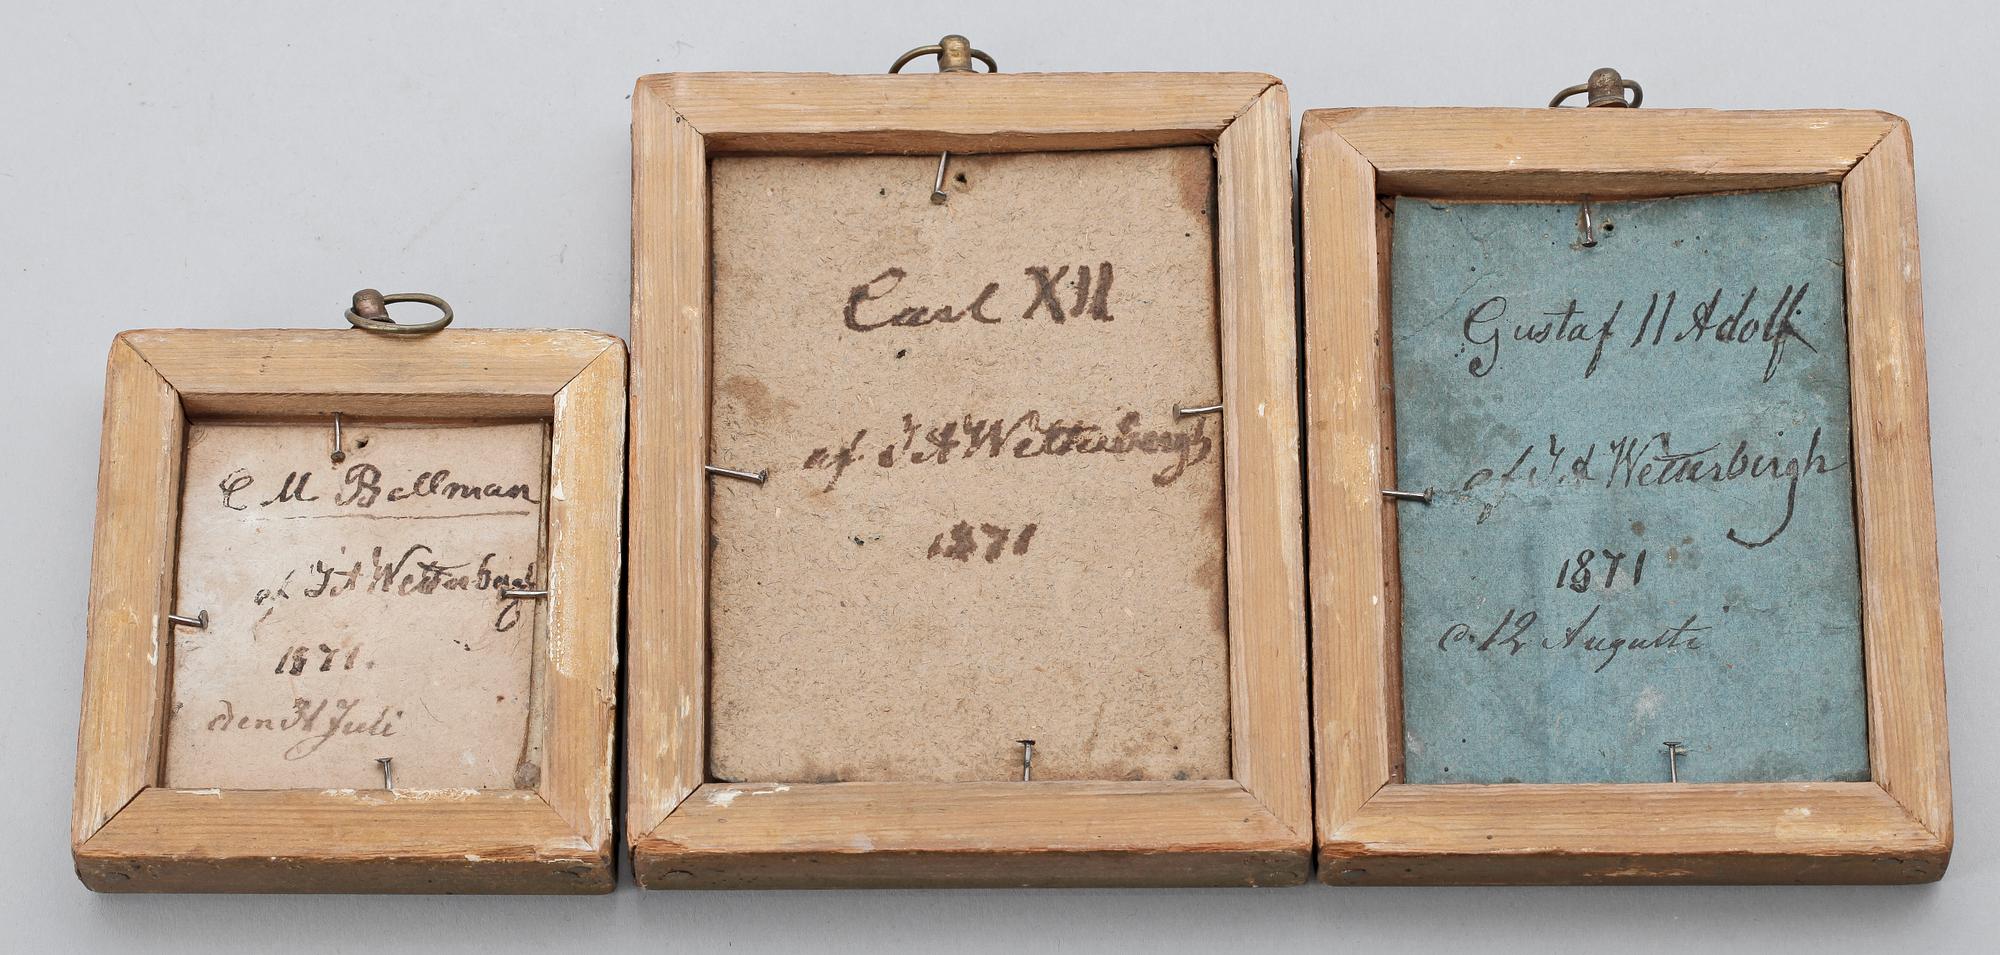 C M Bellman
af J A Wetterbergh
1871.
den 31 Juli
Carl XII
af J A Wetterbergh
1871
Gustaf II Adolf
af J A Wetterbergh
1871
d. 12 Augusti